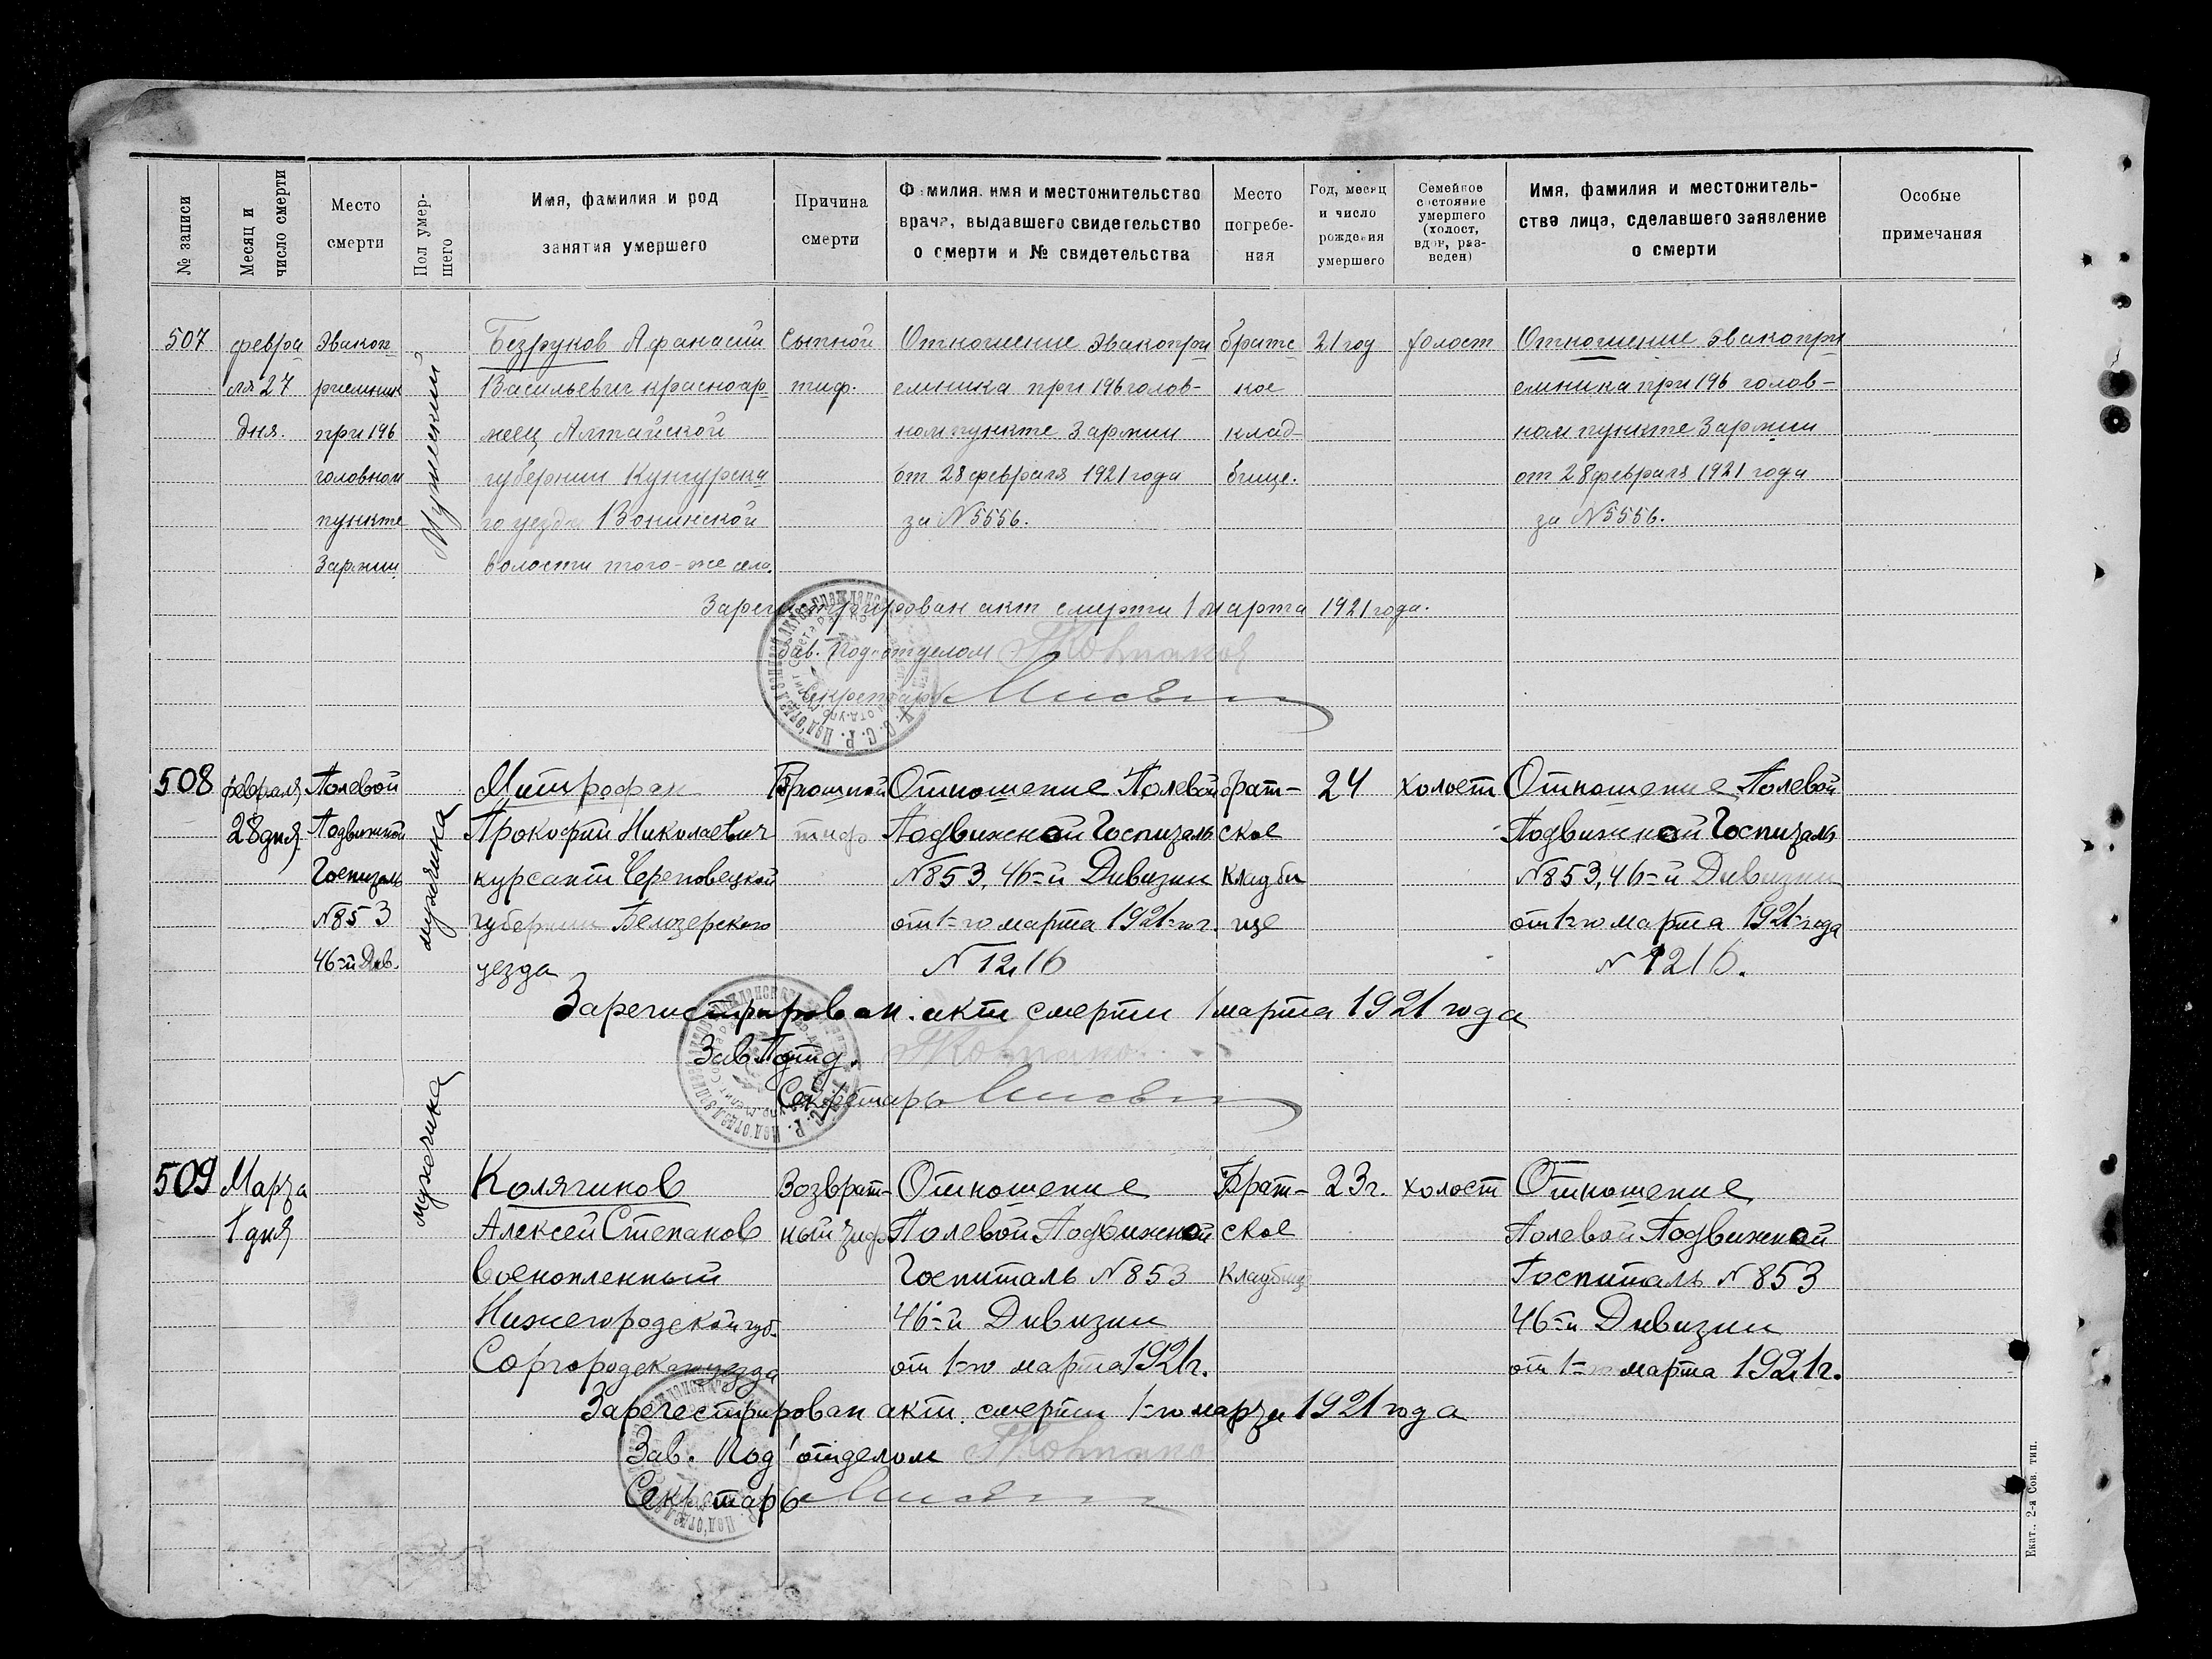 № записи
Месяц и
число смерти
Место
смерти
Пол умер-
шего
Имя, фамилия и род
занятия умершего
Причина
смерти
Фамилия, имя и местожительство
врача, выдавшего свидетельство
о смерти и № свидетельства
Место
погребе-
ния
Год, месяц
и число
рождения
умершего
Семейное
состояние
умершего
(холост,
вдов, раз-
веден)
Имя, фамилия и местожитель-
ства лица, сделавшего заявление
о смерти
Особые
примечания
507
февра
ля 27
дня.
Эвакоп
риемник
при 196
головном
пункте
Зармии
Мужеский
Безруков Афанасий
Васильевич красноар
меец Алтайской
губернии Кунгурска
го уезда Вонинской
волости того-же села.
Сыпной
тиф.
Отношение Эвакопри
емника при 196 голов-
ном пункте Зармии
от 28 февраля 1921 года
за N 5556.
братс
кое
клад-
бище.
21 год
холост
Отношение Эвакопри
емника при 196 голов-
ном пункте Зармии
от 28 февраля 1921 года
за N 5556.
Зарегистрирован акт смерти 1 марта 1921 года.
Зав. Под-отделом
Секретарь
508
февраля
28 дня
Полевой
Подвижной
Госпиталь
N 853
46=й Див.
мужчина
Митрофан
Прокофий Николаевич
курсант Череповецкой
губернии Белозерского
уезда
Брюшной
тиф
Отношение Полевой
Подвижной Госпиталь
N 853, 46=й Дивизии
от 1=го марта 1921=го г.
N 1216
Брат-
ское
Кладби
ще
24
холост
Отношение Полевой
Подвижной Госпиталь
N 853, 46=й Дивизии
от 1=го марта 1921=года
N 1216.
Зарегистрирован. акт смерти 1 марта 1921 года
Зав. Потд.
Секретарь
509
Марта
1 дня
мужчина
Колячинов
Алексей Степанов
военопленный
Нижегородской губ.
Соргородскаго уезда
Возврат-
ный тиф
Отношение
Полевой Подвижной
Госпиталь N 853
46=й Дивизии
от 1=го марта 1921г.
Брат-
ское
Кладбищ
23 г.
холост
Отношение
Полевой Подвижной
Госпиталь N 853
46=й Дивизии
от 1=го марта 1921г.
Зарегестрирован акт. смерти 1=го марта 1921 года
Зав. Под'отделом
Секретарь
Екат., 2-я Сов. тип.